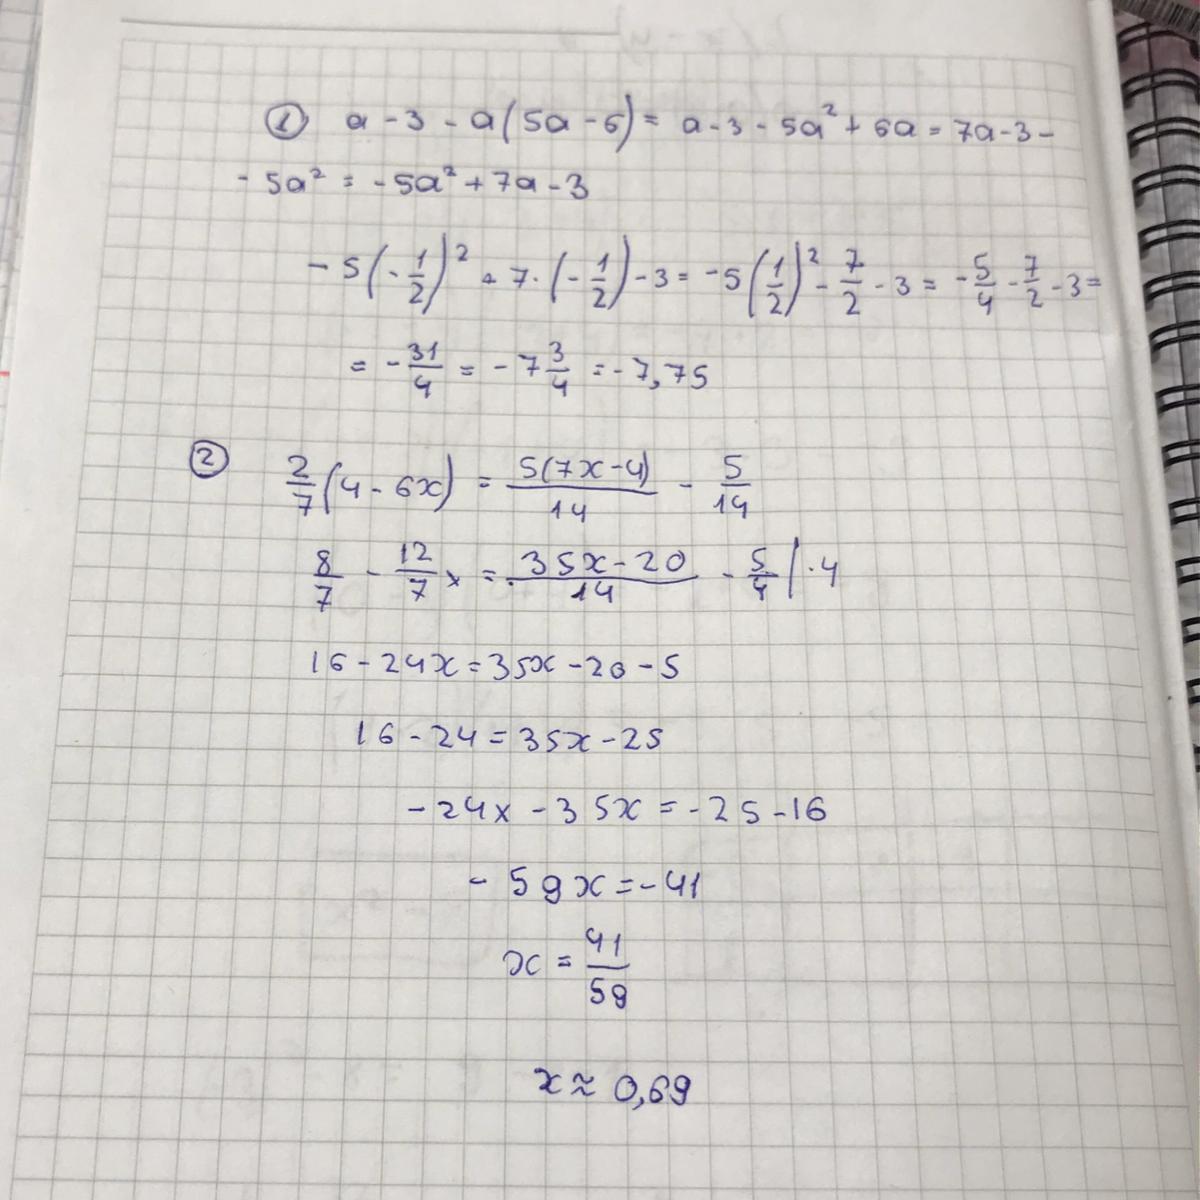 ① a - 3 - a(5a - 6) = a - 3 - 5a² + 6a = 7a - 3 -
- 5a² = -5a² + 7a - 3
- 5(-1/2)² + 7·(-1/2) - 3 = -5(1/2)² - 7/2 - 3 = -5/4 - 7/2 - 3 =
= -31/4 = -7 3/4 = -7,75
② 2/7(4 - 6x) = 5(7x - 4)/14 - 5/14
8/7 - 12/7 x = 35x - 20/14 - 5/4 | ·4
16 - 24x = 35x - 20 - 5
16 - 24 = 35x - 25
- 24x - 35x = -25 - 16
- 59x = -41
x = 41/59
x ≈ 0,69